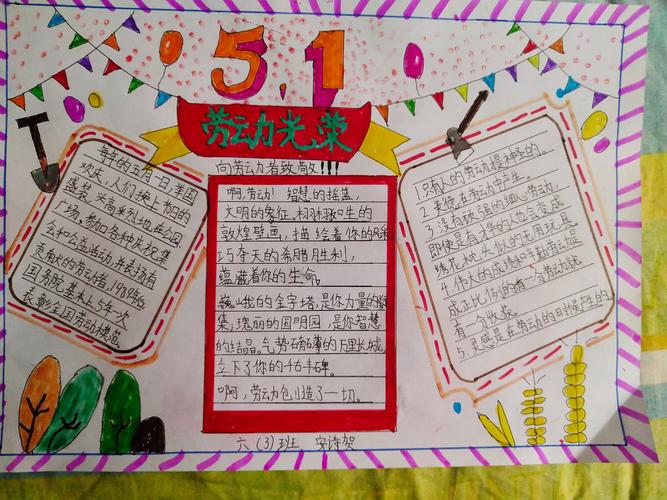 5.1
劳动力光荣
向劳动者致敬!!!
每年的五月一日,季国
欢庆,人们换上节日的
盛装,兴高采烈地在公园
广场,参加各种庆祝集
会和企游活动,并表扬有
贡献的劳动者,1989后
国务院基本上5年一次
表彰全国劳动模范
啊,劳动!智慧的摇篮,
文明的象征,栩栩欲生的
敦煌壁画,描绘着你的风采
巧夺天的希腊胜利,
蕴藏着你的生命,
巍峨的金字塔,是你力量的
集;瑰丽的圆明园,是你智慧
的结晶。气势磅礴的万里长城,
立下了你的千古丰碑。
啊,劳动创造了一切。
1.只有人的劳动是神圣的。
2.美德在劳动中产生。
3.没有顽强的细心劳动,
即使是有才华的人也会变成
绣花枕头似的无用玩具
4.伟大的成绩和辛勤劳动是
成正比例的,有一分劳动就
有一分收获。
5.灵感是在劳动的时候产生的
六(3)班 宋诗贺